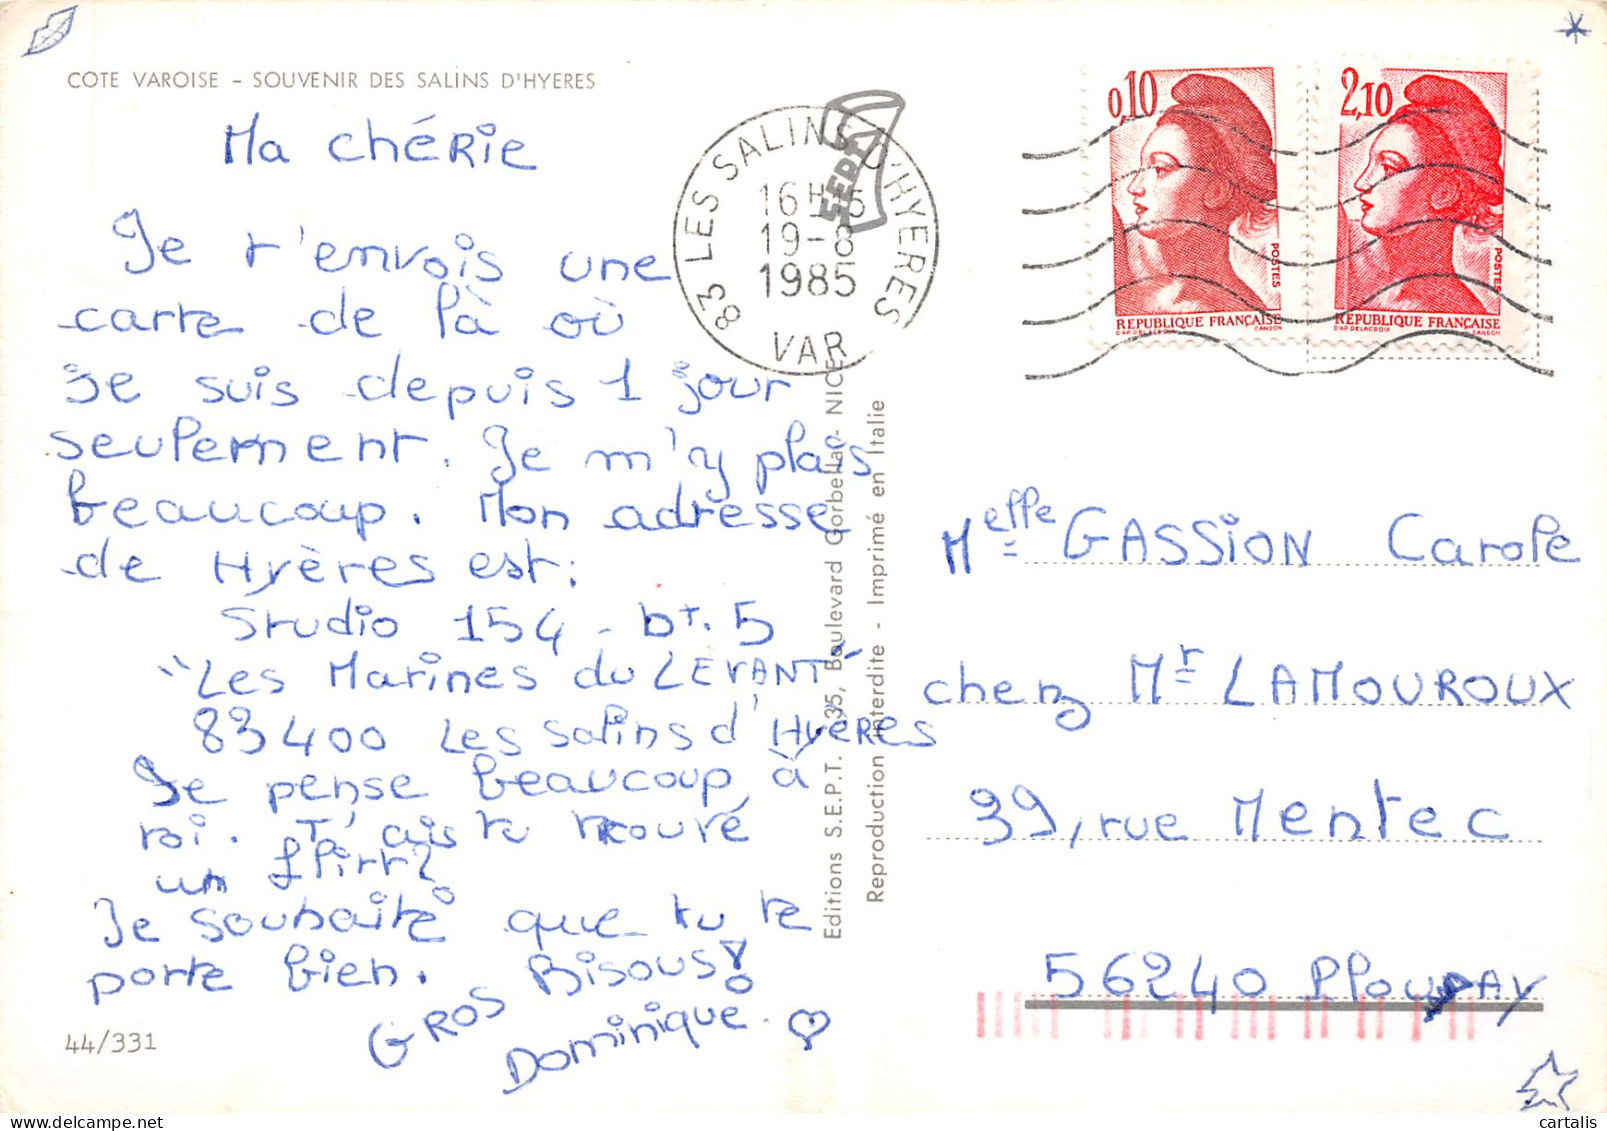 COTE VAROISE – SOUVENIR DES SALINS D'HYERES
Ma chérie
Je t'envois une
carte de là où
je suis depuis 1 jour
seulement. Je m'y plais
beaucoup. Mon adresse
de Hyères est:
Studio 154 - bt. 5
"Les Marines du LEVANT"
83400 Les Salins d'Hyères
Je pense beaucoup à
toi. T'ais tu trouvé
un flirt?
Je souhaite que tu te
porte bien.
GROS Bisous!
Dominique.
44/331
83 LES SALINS D'HYERES
16 H 15
19-8
1985
VAR
SEPT
Editions S.E.P.T. 235, Boulevard Gorbella - NICE
Reproduction interdite - Imprimé en Italie
0,10
POSTES
REPUBLIQUE FRANÇAISE
D'AP DELACROIX GANDON
2,10
POSTES
REPUBLIQUE FRANÇAISE
D'AP DELACROIX GANDON
Melle GASSION Carole
chez Mr LAMOUROUX
39, rue Mentec
56240 Plouay
cartalis